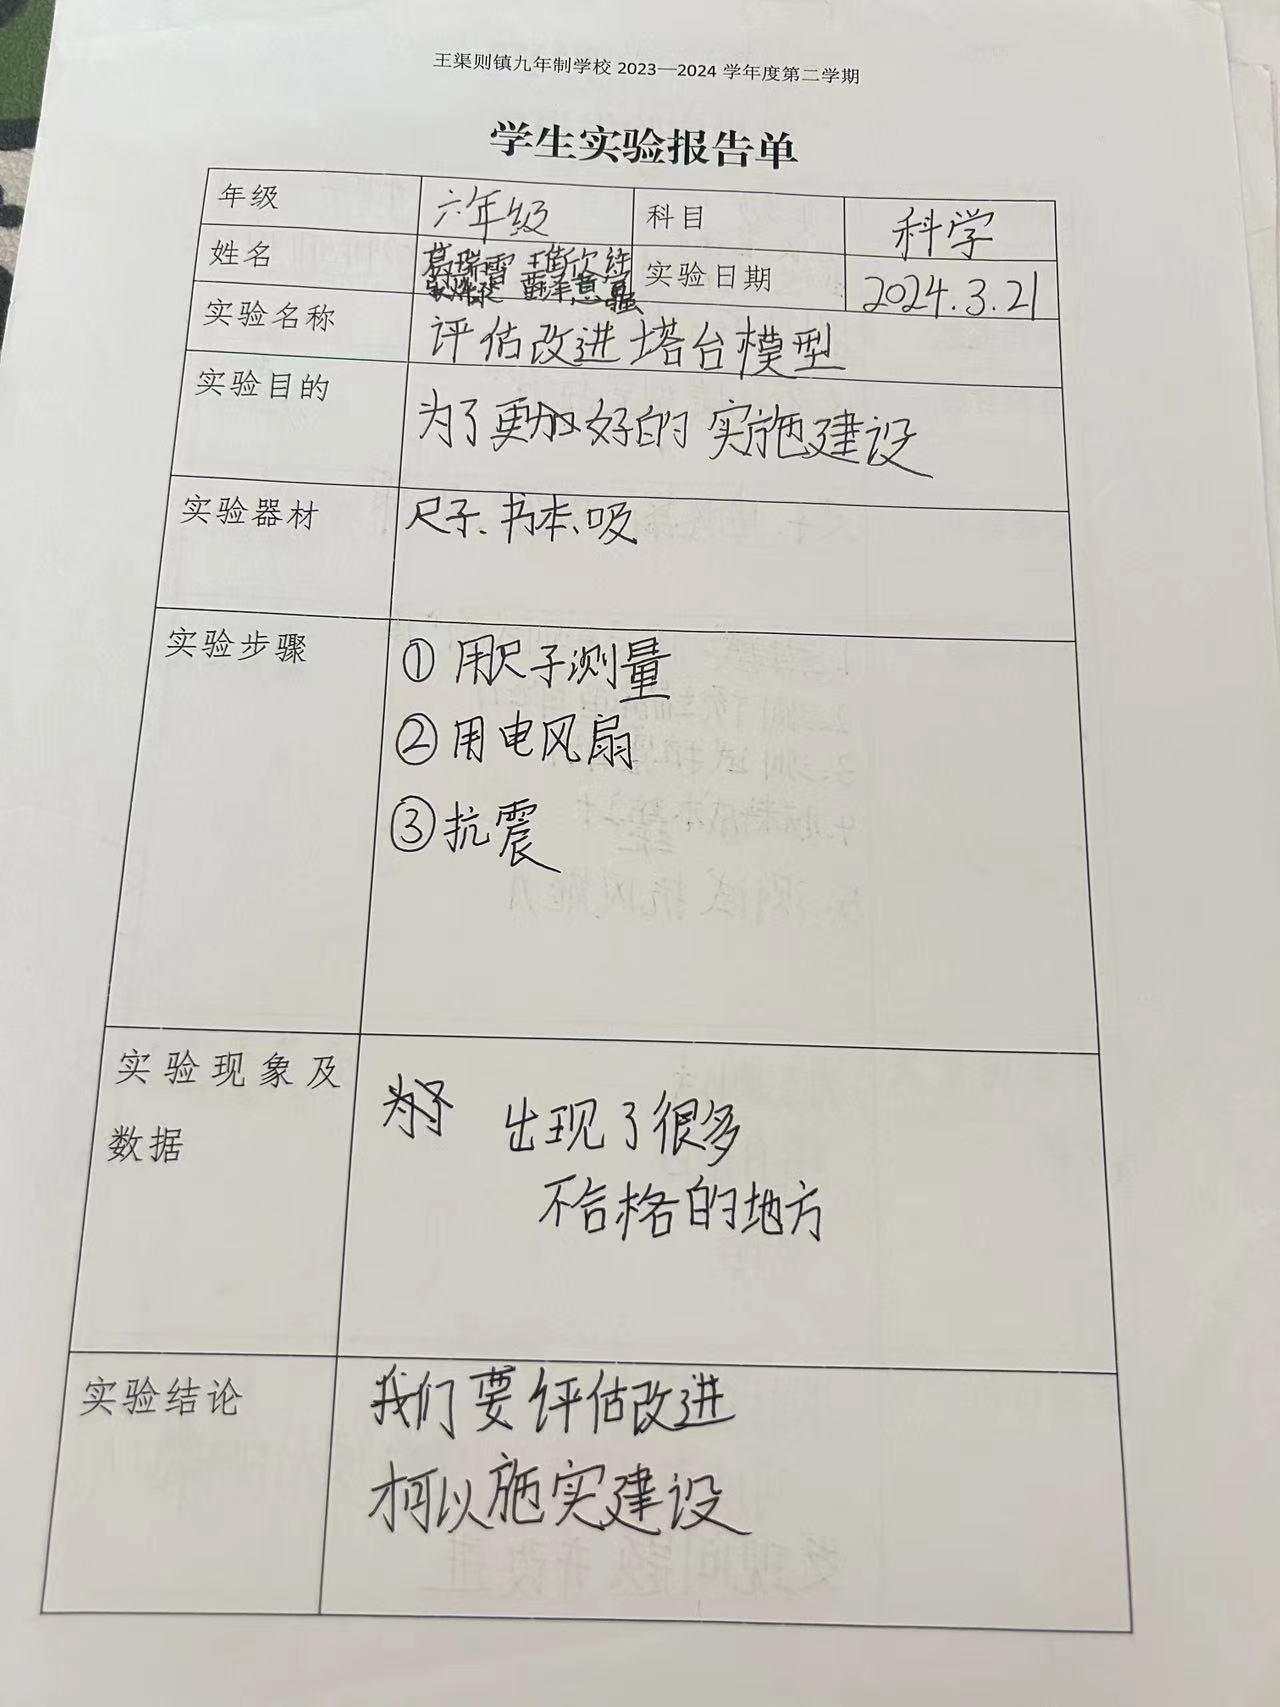 王渠则镇九年制学校 2023—2024 学年度第二学期
学生实验报告单
年级 六年级 科目 科学
姓名 葛瑞雪 实验日期 2024.3.21
实验名称 评估改进塔台模型
实验目的 为了更加好的实施建设
实验器材 尺子、书本、吸
实验步骤 ① 用尺子测量
② 用电风扇
③ 抗震
实验现象及 出现了很多
数据 不合格的地方
实验结论 我们要评估改进
才可以施实建设